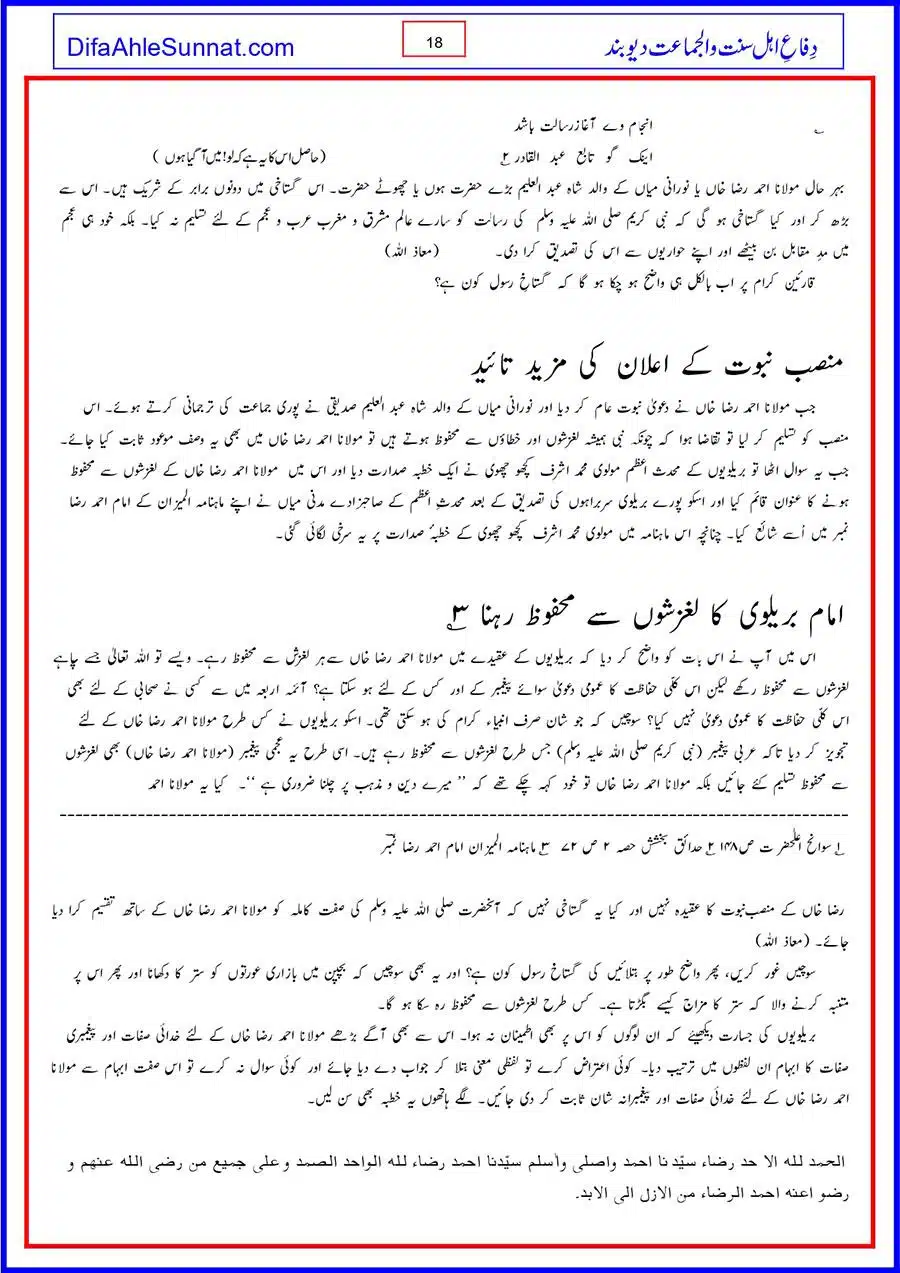 DifaAhleSunnat.com
18
دِفاعِ اہل سنت والجماعت دیوبند
انجام وے آغاز رسالت باشد
اینک گو تابع عبد القادر ۲ (حاصل اس کا یہ ہے کہ لو! میں آ گیا ہوں)
بہر حال مولانا احمد رضا خاں یا نورانی میاں کے والد شاہ عبد العلیم بڑے حضرت ہوں یا چھوٹے حضرت۔ اس گستاخی میں دونوں برابر کے شریک ہیں۔ اس سے
بڑھ کر اور کیا گستاخی ہو گی کہ نبی کریم صلی اللہ علیہ وسلم کی رسالت کو سارے عالم مشرق و مغرب عرب و عجم کے لئے تسلیم نہ کیا۔ بلکہ خود ہی عجم
میں مدِ مقابل بن بیٹھے اور اپنے حواریوں سے اس کی تصدیق کرا دی۔ (معاذ اللہ)
قارئین کرام پر اب بالکل ہی واضح ہو چکا ہو گا کہ گستاخِ رسول کون ہے؟
منصب نبوت کے اعلان کی مزید تائید
جب مولانا احمد رضا خاں نے دعویٰ نبوت عام کر دیا اور نورانی میاں کے والد شاہ عبد العلیم صدیقی نے پوری جماعت کی ترجمانی کرتے ہوئے۔ اس
منصب کو تسلیم کر لیا تو تقاضا ہوا کہ چونکہ نبی ہمیشہ لغزشوں اور خطاؤں سے محفوظ ہوتے ہیں تو مولانا احمد رضا خاں میں بھی یہ وصف موعود ثابت کیا جائے۔
جب یہ سوال اٹھا تو بریلویوں کے محدث اعظم مولوی محمد اشرف کچھو چھوی نے ایک خطبہ صدارت دیا اور اس میں مولانا احمد رضا خاں کے لغزشوں سے محفوظ
ہونے کا عنوان قائم کیا اور اسکو پورے بریلوی سربراہوں کی تصدیق کے بعد محدثِ اعظم کے صاحبزادے مدنی میاں نے اپنے ماہنامہ المیزان کے امام احمد رضا
نمبر میں اُسے شائع کیا۔ چنانچہ اس ماہنامہ میں مولوی محمد اشرف کچھو چھوی کے خطبۂ صدارت پر یہ سرخی لگائی گئی۔
امام بریلوی کا لغزشوں سے محفوظ رہنا ۳
اس میں آپ نے اس بات کو واضح کر دیا کہ بریلویوں کے عقیدے میں مولانا احمد رضا خاں سے ہر لغزش سے محفوظ رہے۔ ویسے تو اللہ تعالیٰ جسے چاہے
لغزشوں سے محفوظ رکھے لیکن اس کلی حفاظت کا عمومی دعویٰ سوائے پیغمبر کے اور کس کے لئے ہو سکتا ہے؟ آئمہ اربعہ میں سے کسی نے صحابی کے لئے بھی
اس کلی حفاظت کا عمومی دعویٰ نہیں کیا؟ سوچیں کہ جو شان صرف انبیاء کرام کی ہو سکتی تھی۔ اسکو بریلویوں نے کس طرح مولانا احمد رضا خاں کے لئے
تجویز کر دیا تاکہ عربی پیغمبر (نبی کریم صلی اللہ علیہ وسلم) جس طرح لغزشوں سے محفوظ رہے ہیں۔ اسی طرح یہ عجمی پیغمبر (مولانا احمد رضا خاں) بھی لغزشوں
سے محفوظ تسلیم کئے جائیں بلکہ مولانا احمد رضا خاں تو خود کہہ چکے تھے کہ ’’ میرے دین و مذہب پر چلنا ضروری ہے ‘‘۔ کیا یہ مولانا احمد
۱ سوانح اعلٰحضر ت ص۱۴۸ ۲ حدائق بخشش حصہ ۲ ص ۷۲ ۳ ماہنامہ المیزان امام احمد رضا نمبر
رضا خاں کے منصب نبوت کا عقیدہ نہیں اور کیا یہ گستاخی نہیں کہ آنحضرت صلی اللہ علیہ وسلم کی صفت کاملہ کو مولانا احمد رضا خاں کے ساتھ تقسیم کرا دیا
جائے۔ (معاذ اللہ)
سوچیں غور کریں، پھر واضح طور پر بتلائیں کی گستاخ رسول کون ہے؟ اور یہ بھی سوچیں کہ بچپن میں بازاری عورتوں کو ستر کا دکھانا اور پھر اس پر
متنبہ کرنے والا کہ ستر کا مزاج کیسے بگڑتا ہے۔ کس طرح لغزشوں سے محفوظ رہ سکا ہو گا۔
بریلویوں کی جسارت دیکھیئے کہ ان لوگوں کو اس پر بھی اطمینان نہ ہوا۔ اس سے بھی آگے بڑھے مولانا احمد رضا خاں کے لئے خدائی صفات اور پیغمبری
صفات کا ابہام ان لفظوں میں ترتیب دیا۔ کوئی اعتراض کرے تو لفظی معنی بتلا کر جواب دے دیا جائے اور کوئی سوال نہ کرے تو اس صفت ابہام سے مولانا
احمد رضا خاں کے لئے خدائی صفات اور پیغمبرانہ شان ثابت کر دی جائیں۔ لگے ہاتھوں یہ خطبہ بھی سن لیں۔
الحمد لله الا حد رضاء سيّد نا احمد واصلى وأسلم سيّدنا احمد رضاء لله الواحد الصمد وعلى جميع من رضى الله عنهم و
رضو اعنه احمد الرضاء من الازل الى الابد۔